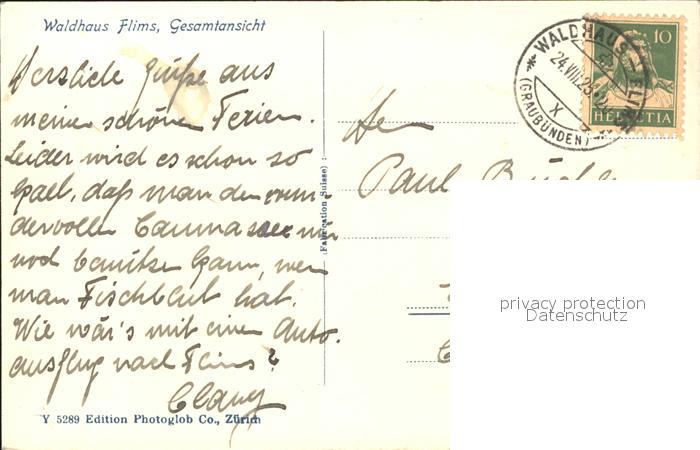 Waldhaus Flims, Gesamtansicht
Herzliche Grüße aus
meinen schönen Ferien.
Leider wird es schon so
kalt, daß man den wun-
dervollen Caumasee nur
noch benützen kann, wenn
man Fischblut hat.
Wie wär's mit einem Auto-
ausflug nach Flims?
Y 5289 Edition Photoglob Co., Zürich
(Fabrication Suisse)
WALDHAUS - FLIMS
24.VIII.25
(GRAUBÜNDEN)
X
10
HELVETIA
Paul
privacy protection
Datenschutz